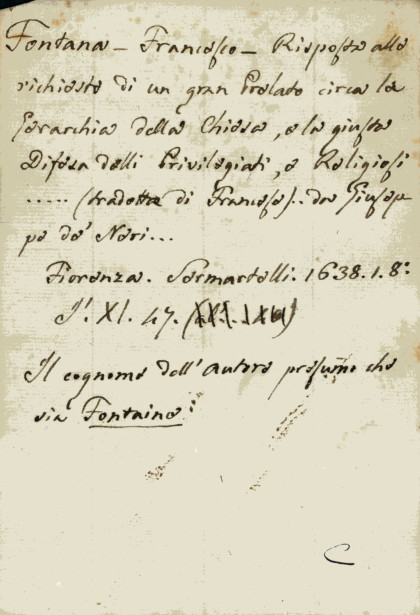 Fontana - Francesco - Risposta alle
richieste di un gran Prelato circa la
Gerarchia della Chiesa, e la giusta
Difesa delli Privilegiati, e Religiosi
..... (tradotta di Francese).. da Giusep
pe de' Neri...
Fiorenza. Sermartelli. 1638. 1. 8:
I'. XI. 47.
Il cognome dell' autore presumo che
sia Fontaine.
C